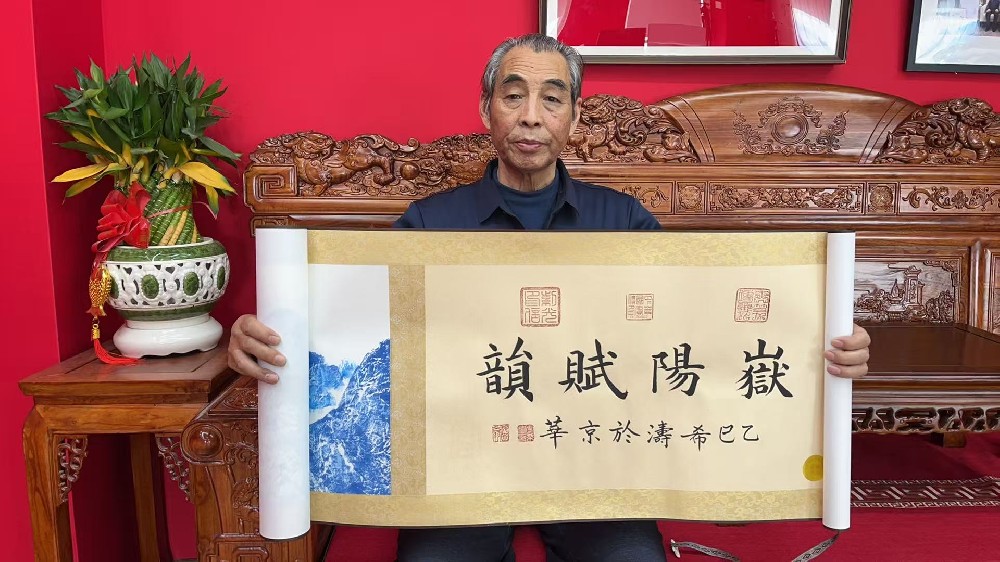 嶽陽賦韻
乙巳希濤於京華